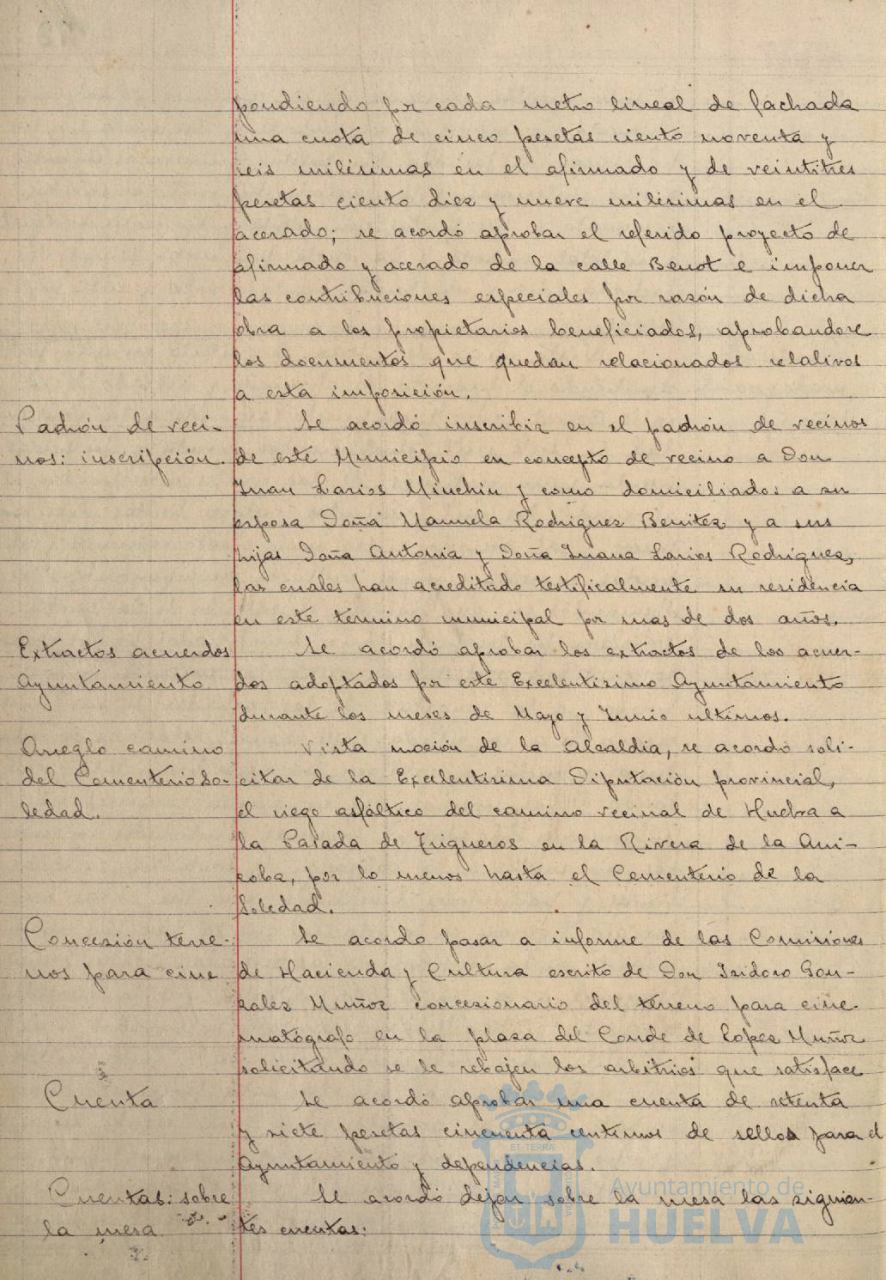 pondiendo por cada metro lineal de fachada
una cuota de cinco pesetas ciento noventa y
seis milésimas en el afirmado y de veintitres
pesetas ciento diez y nueve milésimas en el
acerado; se acordó aprobar el referido proyecto de
afirmado y acerado de la calle Benot e imponer
las contribuciones especiales por razón de dicha
obra a los propietarios beneficiados, aprobandose
los documentos que quedan relacionados relativos
a esta imposición.
Padrón de veci-
nos: inscripción.
Se acordó inscribir en el padrón de vecinos
de este Municipio en concepto de vecino a Don
Juan Larios Minchin y como domiciliados a su
esposa Doña Manuela Rodriguez Benitez y a sus
hijas Doña Antonia y Doña Juana Larios Rodriguez,
las cuales han acreditado testificalmente su residencia
en este término municipal por mas de dos años.
Extractos acuerdos
Ayuntamiento
Se acordó aprobar los extractos de los acuer-
dos adoptados por este Excelentisimo Ayuntamiento
durante los meses de Mayo y Junio ultimos.
Arreglo camino
del Cementerio So-
ledad.
Vista moción de la Alcaldia, se acordó soli-
citar de la Excelentisima Diputación provincial,
el riego asfáltico del camino vecinal de Huelva a
la Parada de Trigueros en la Rivera de la Ani-
coba, por lo menos hasta el Cementerio de la
Soledad.
Concesión terre-
nos para cine
Se acordo pasar a informe de las Comisiones
de Hacienda y Cultura escrito de Don Isidoro Gon-
zalez Muñoz concesionario del terreno para cine-
matógrafo en la plaza del Conde de Lopez Muñoz
solicitando se le rebajen los arbitrios que satisface
Cuenta
Se acordó aprobar una cuenta de setenta
y siete pesetas cincuenta centimos de sellos para el
Ayuntamiento y dependencias.
Cuentas: sobre
la mesa
Se acordó dejar sobre la mesa las siguien-
tes cuentas:
Ayuntamiento de
HUELVA